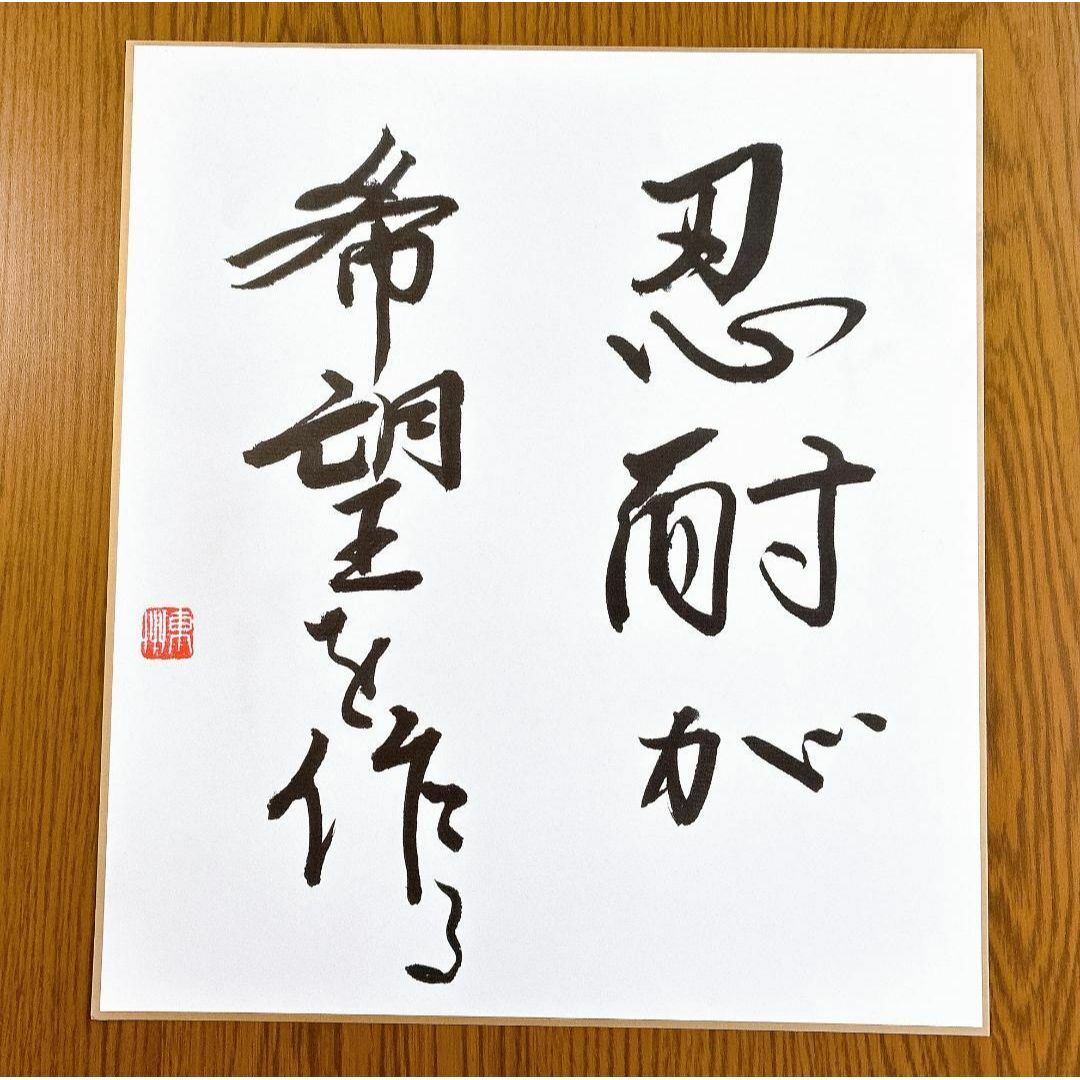 忍耐が
希望を作る